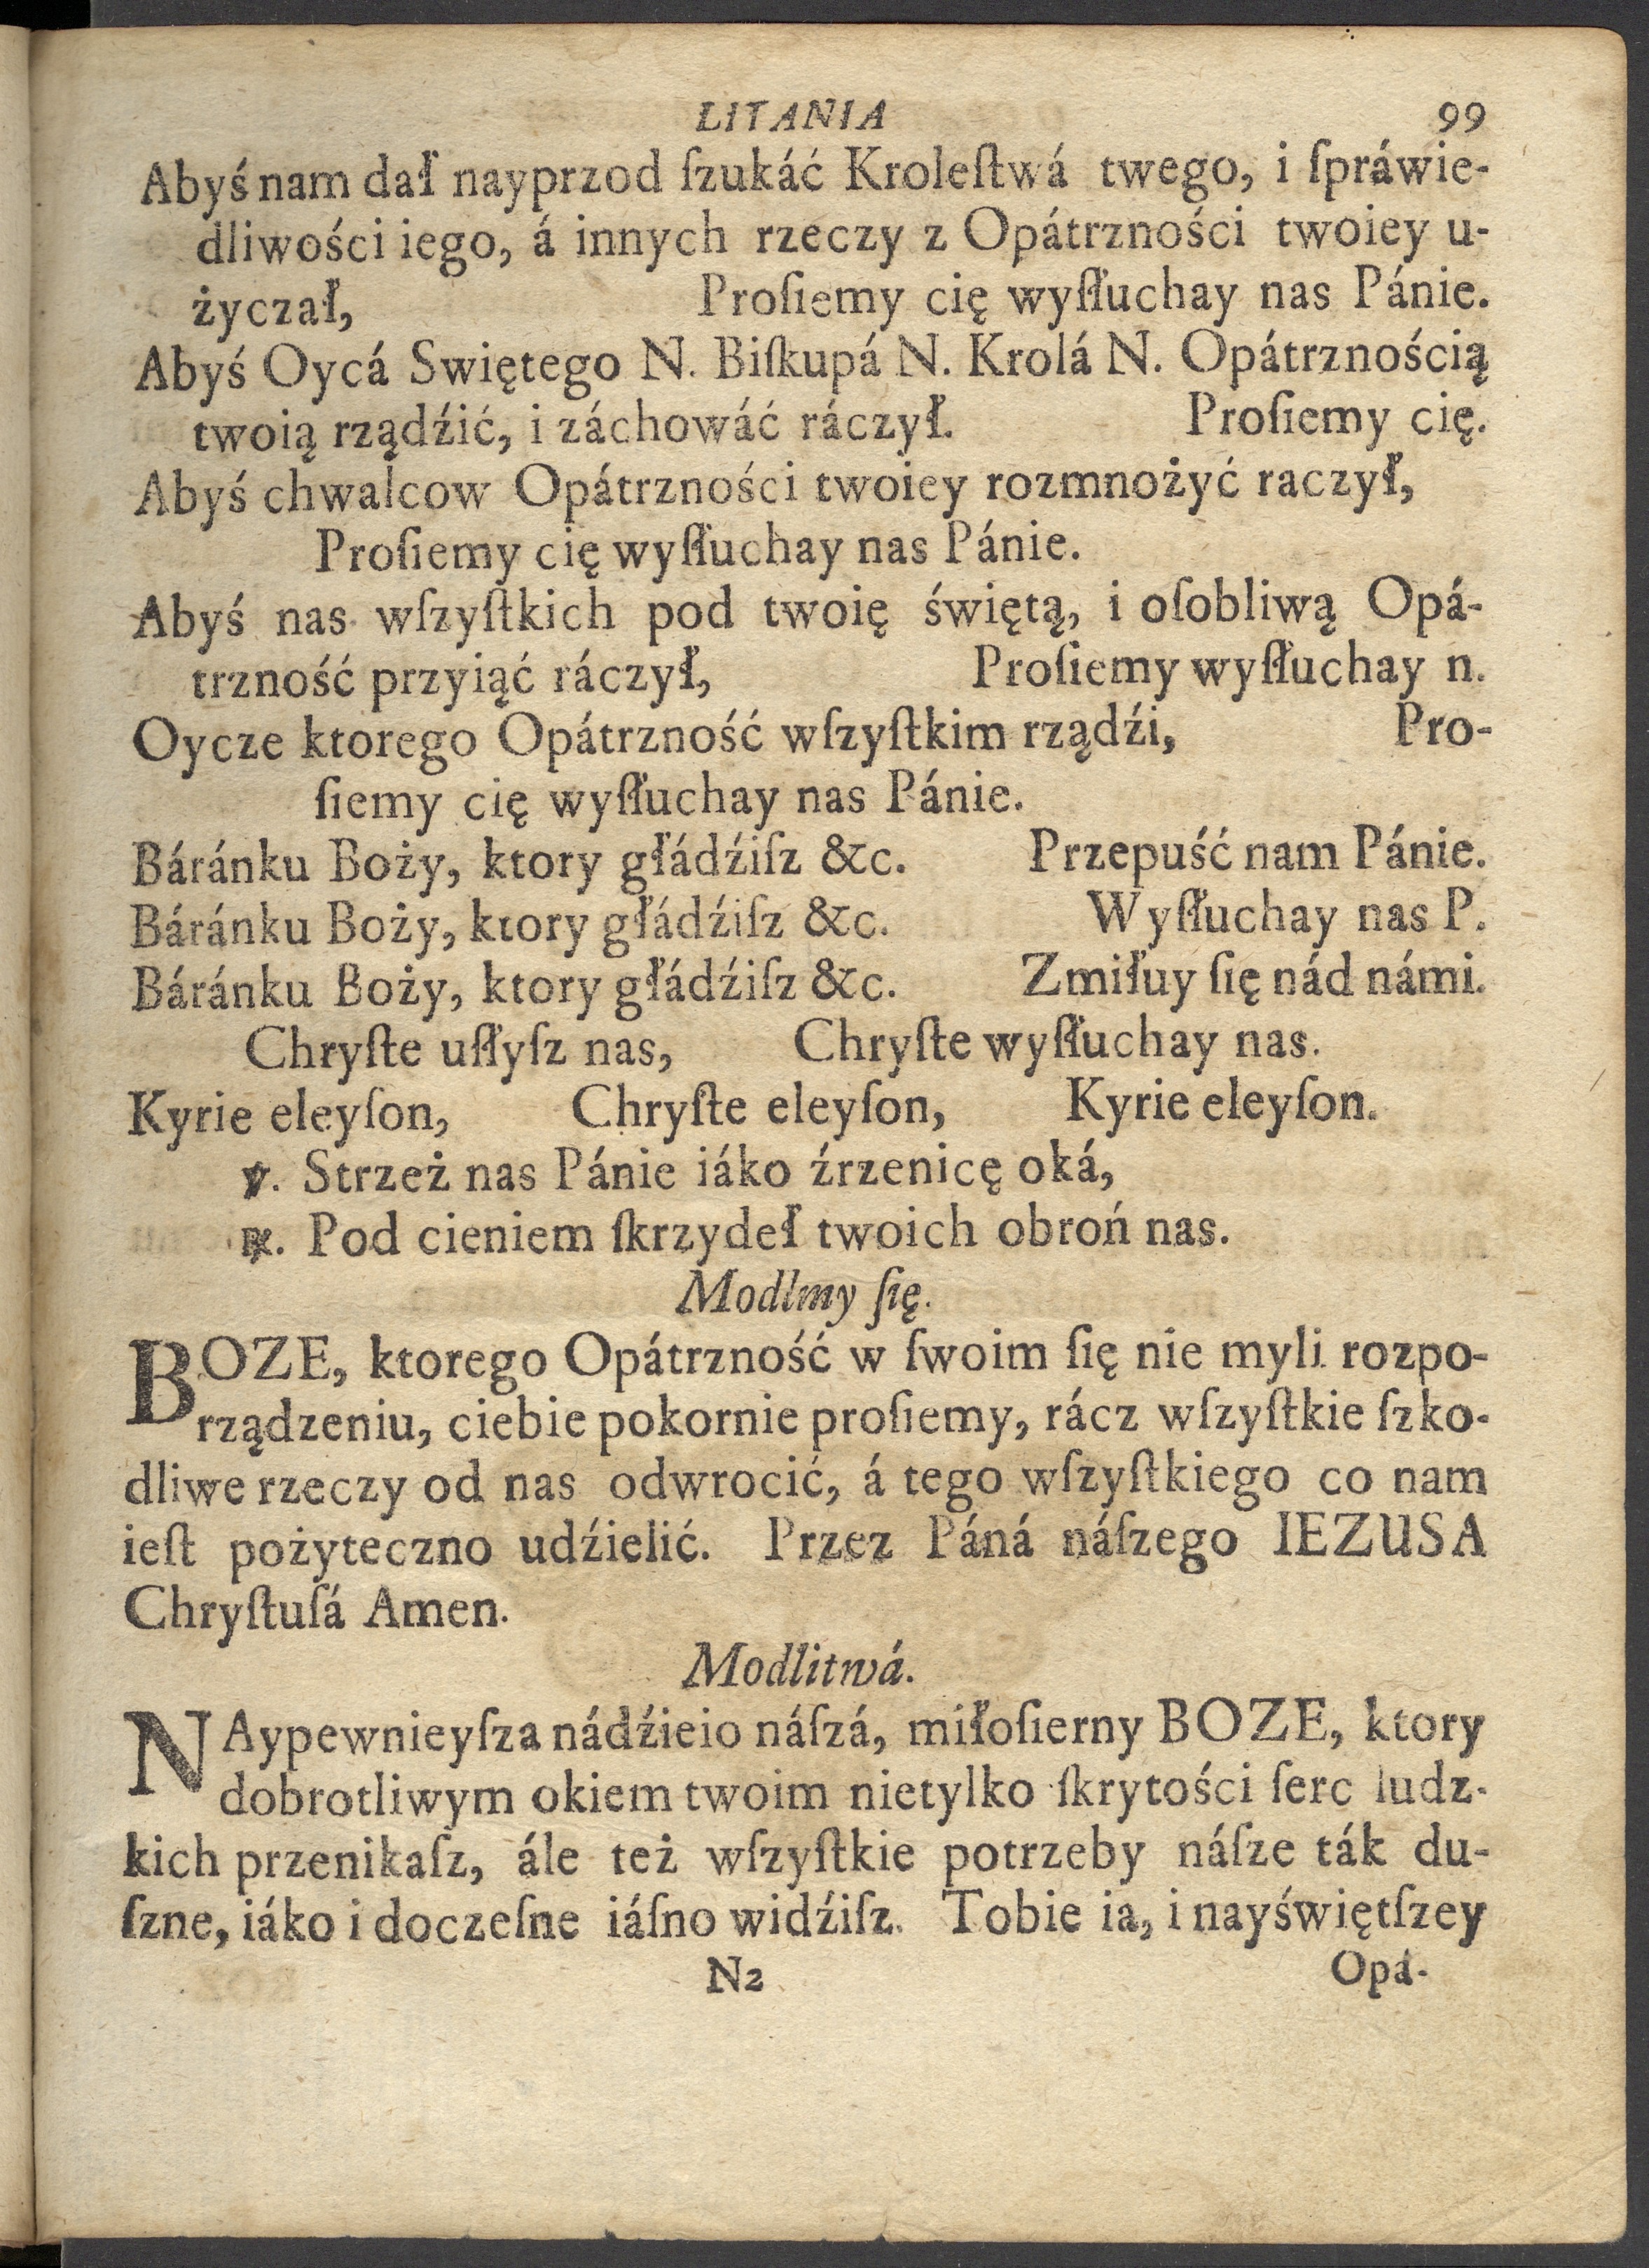 LITANIA 99
Abyś nam dał nayprzod ſzukáć Kroleſtwá twego, i ſpráwie-
dliwości iego, á innych rzeczy z Opátrzności twoiey u-
życzał, Proſiemy cię wyſłuchay nas Pánie.
Abyś Oycá Swiętego N. Biſkupá N. Krolá N. Opátrznością
twoią rządźić, i záchowáć ráczył. Proſiemy cię.
Abyś chwalcow Opátrzności twoiey rozmnożyć raczył,
Proſiemy cię wyſłuchay nas Pánie.
Abyś nas wſzyſtkich pod twoię świętą, i oſobliwą Opá-
trzność przyiąć ráczył, Proſiemy wyſłuchay n.
Oycze ktorego Opátrzność wſzyſtkim rządźi, Pro-
ſiemy cię wyſłuchay nas Pánie.
Báránku Boży, ktory głádźiſz &c. Przepuść nam Pánie.
Báránku Boży, ktory głádźiſz &c. Wyſłuchay nas P.
Báránku Boży, ktory głádźiſz &c. Zmiłuy ſię nád námi.
Chryſte uſłyſz nas, Chryſte wyſłuchay nas.
Kyrie eleyſon, Chryſte eleyſon, Kyrie eleyſon.
℣. Strzeż nas Pánie iáko źrzenicę oká,
℟. Pod cieniem ſkrzydeł twoich obroń nas.
Modlmy ſię.
BOZE, ktorego Opátrzność w ſwoim ſię nie myli rozpo-
rządzeniu, ciebie pokornie proſiemy, rácz wſzyſtkie ſzko-
dliwe rzeczy od nas odwrocić, á tego wſzyſtkiego co nam
ieſt pożyteczno udźielić. Przez Páná náſzego IEZUSA
Chryſtuſá Amen.
Modlitwá.
NAypewnieyſza nádźieio náſzá, miłoſierny BOZE, ktory
dobrotliwym okiem twoim nietylko ſkrytości ſerc ludz-
kich przenikaſz, ále też wſzyſtkie potrzeby náſze ták du-
ſzne, iáko i doczeſne iáſno widźiſz. Tobie ia, i nayświętſzey
N2 Opá-